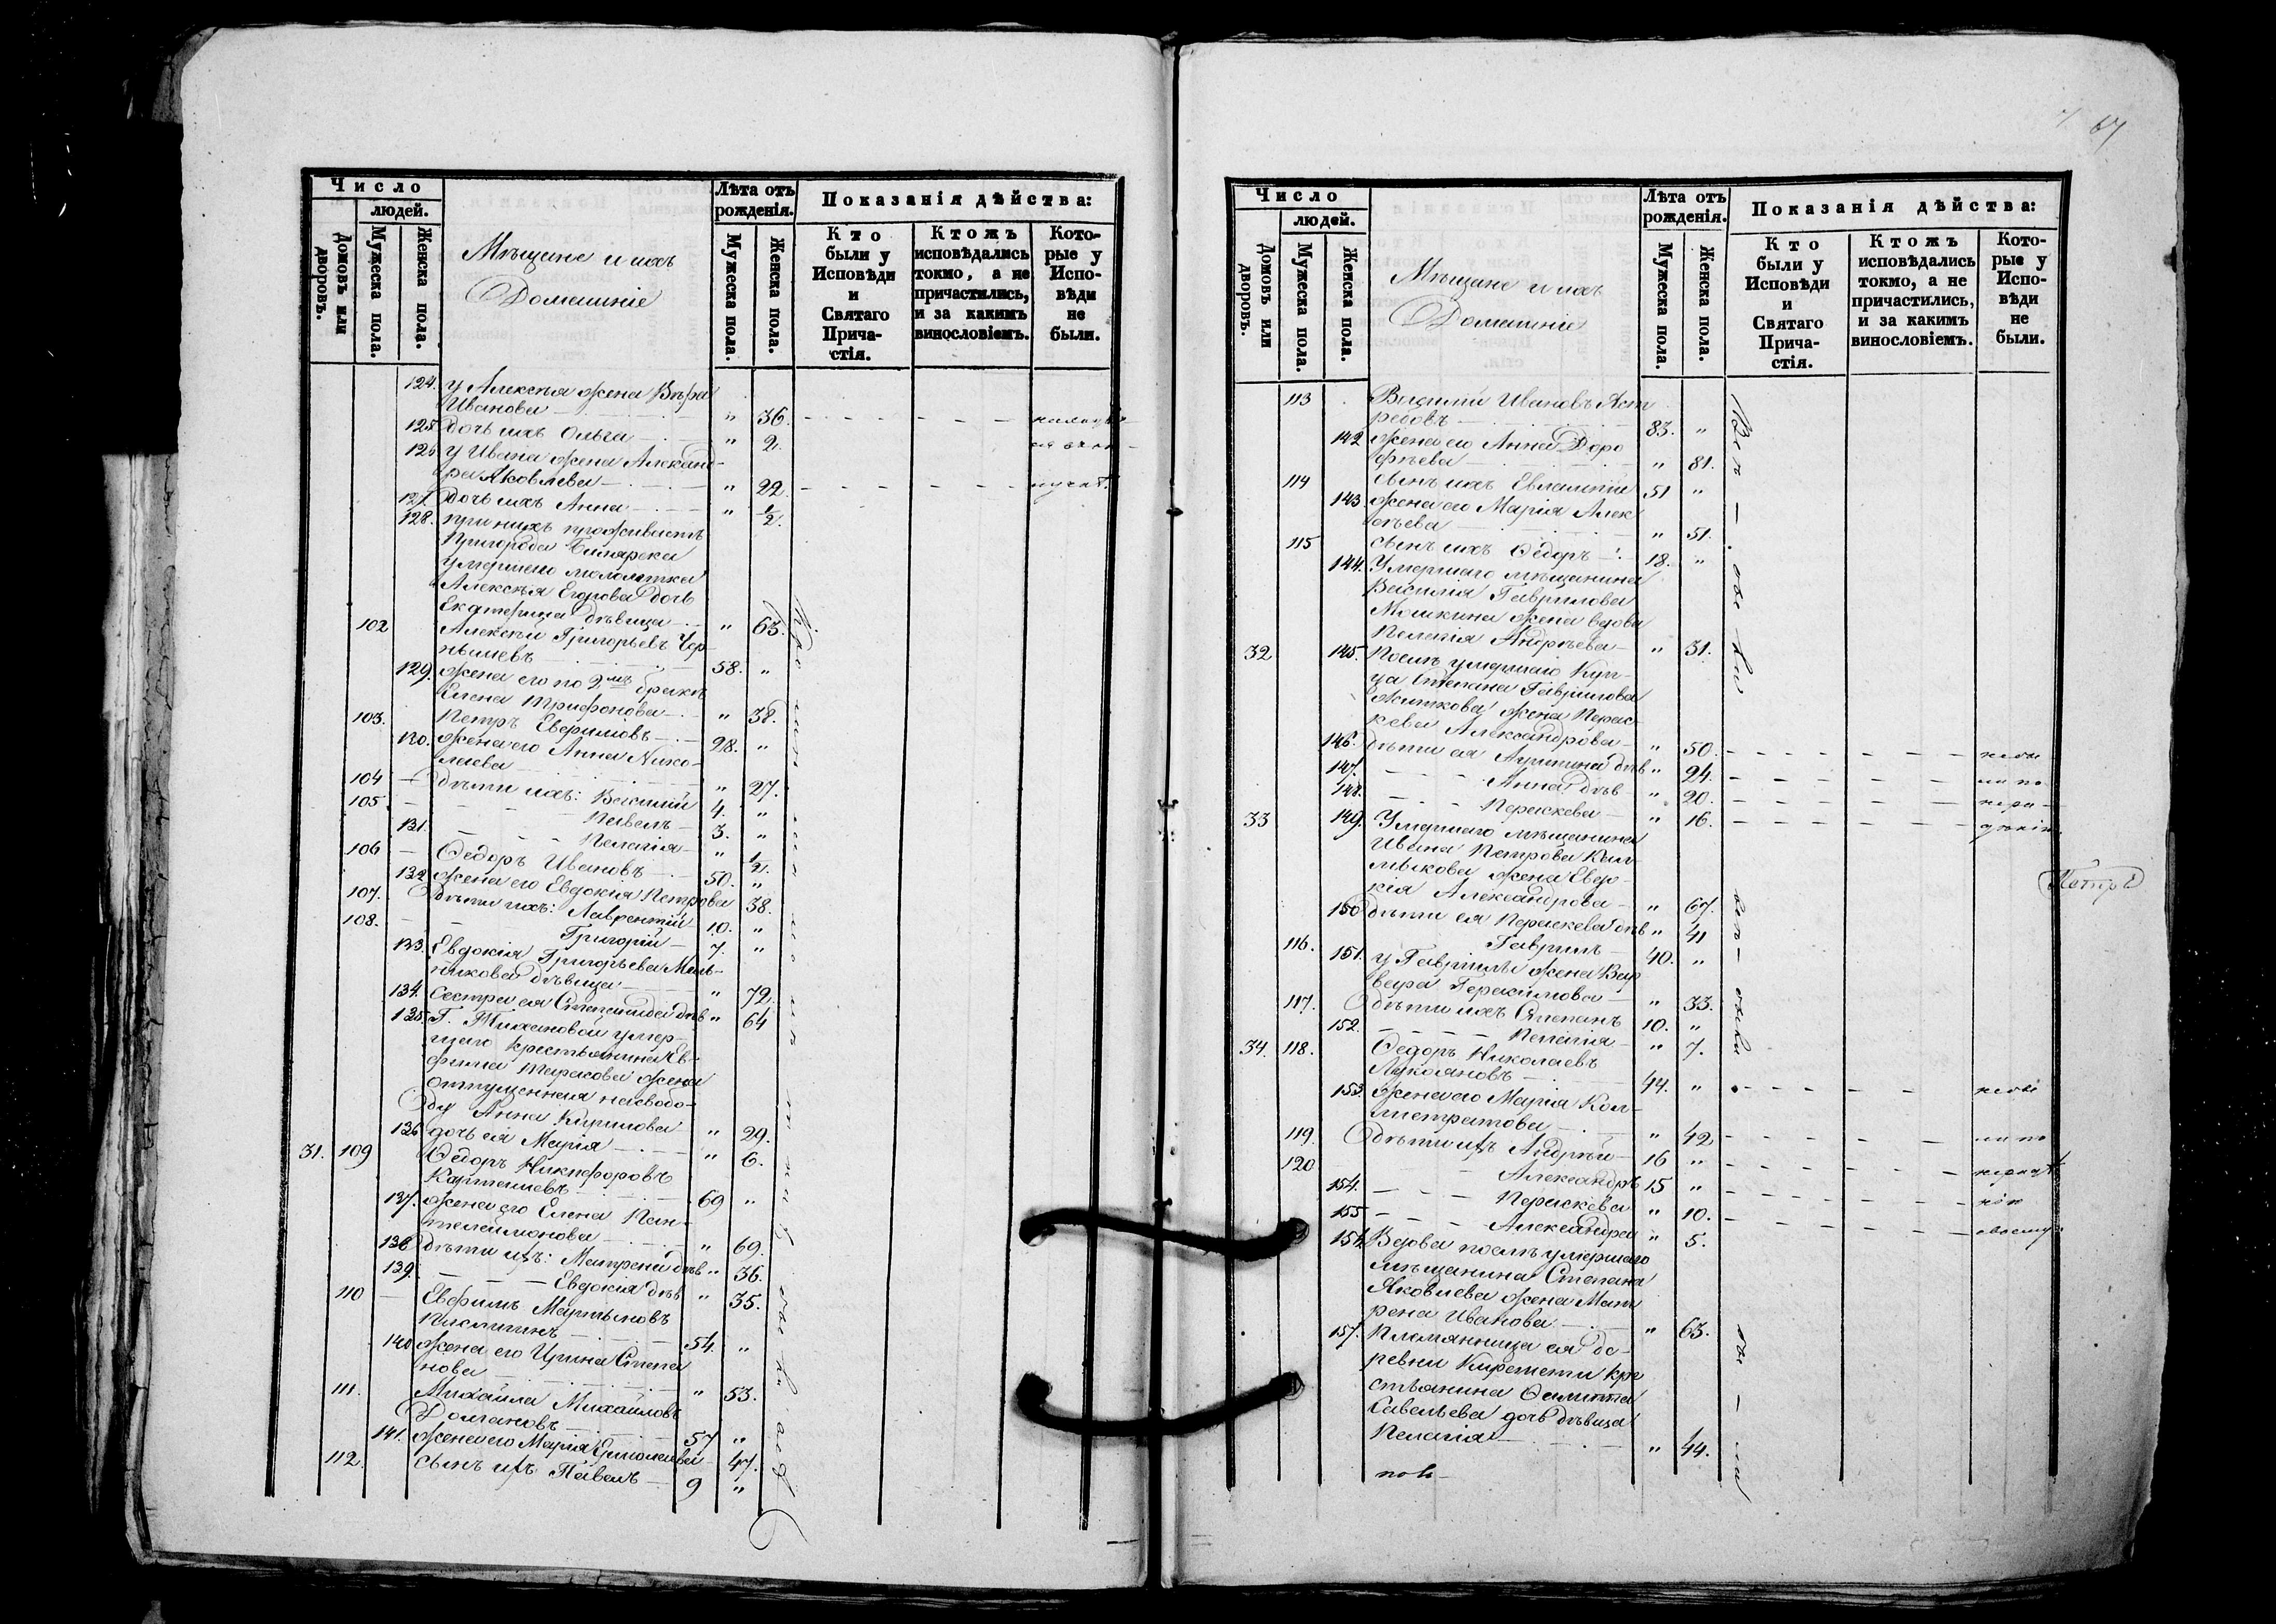 Число
людей.
Домовъ или дворовъ.
Мужеска пола.
Женска пола.
Мѣщане и ихъ
Домашніе
Лѣта отъ
рожденія.
Мужеска пола.
Женска пола.
Показанія дѣйства:
Кто
были у
Исповѣди
и
Святаго
Прича-
стія.
Ктожъ
исповѣдались
токмо, а не
причастились,
и за какимъ
винословіемъ.
Кото-
рые у
Испо-
вѣди
не
были.
124. у Алексѣя жена Вѣра
Иванова " 36.
125. дочь ихъ Ольга " 2.
126 у Ивана жена Алексан-
ра Яковлева " 22.
127. дочь ихъ Анна " 1/2.
128. при нихъ проживаетъ
Пригорода Билярска
умершаго малолѣтка
Алексѣя Егорова дочь
Екатерина дѣвица " 63.
102 Алексѣй Григорьевъ Чер-
нышевъ 58. "
129. жена его по 2мъ бракѣ
Елена Трифонова " 38.
103. Петръ Евфимовъ 28. "
130. жена его Анна Нико-
лаева " 27.
104 дѣти ихъ: Василій 4. "
105. Павелъ 3. "
131. Пелагія " 1/2.
106 Ѳедоръ Ивановъ 50. "
132 жена его Евдокія Петрова 38.
107. дѣти ихъ: Лаврентій 10. "
108. Григорій 7. "
133. Евдокія Григорьева Мель-
никова дѣвица " 72.
134. сестра ея Степанида дѣв " 64
135. Г. Тихановой умер-
шаго крестьянина Ев-
фима Тарасова жена
отпущенная на свобо-
ду Анна Кирилова " 29.
136 дочь ея Марія " 6.
31. 109 Ѳедоръ Никифоровъ
Карташевъ 69 "
137. жена его Елена Пан-
телеимонова " 69.
138 дѣти ихъ: Матрена дѣв " 36.
139. Евдокія дѣв " 35.
110 Евфимъ Мартыновъ
Пикмигинъ 54. "
140 жена его Ирина Степа
нова " 53.
111. Михайла Михайловъ
Долгановъ 57 "
141. жена его Марія Ермолаева 47.
112. сынъ ихъ Павелъ 9 "
67
Число
людей.
Домовъ или дворовъ.
Мужеска пола.
Женска пола.
Мѣщане и ихъ
Домашніе
Лѣта отъ
рожденія.
Мужеска пола.
Женска пола.
Показанія дѣйства:
Кто
были у
Исповѣди
и
Святаго
Прича-
стія.
Ктожъ
исповѣдались
токмо, а не
причастились,
и за какимъ
винословіемъ.
Кото-
рые у
Испо-
вѣди
не
были.
113 Василій Ивановъ Яст
ребовъ 83. "
142 жена его Анна Доро
фѣева " 81.
114 сынъ ихъ Евлампій 51 "
143 жена его Марія Алек
сѣева " 51.
115 сынъ ихъ Ѳедоръ 18. "
144. Умершаго мѣщанина
Василія Гаврилова
Мошкина жена вдова
Пелагія Андрѣева " 31.
32 145. Послѣ умершаго Куп-
ца Степана Гаврилова
Житкова жена Парас-
кева Александрова " 50.
146. дѣти ея Агрипина дѣв " 24.
147. Анна дѣв " 20.
148. Параскева " 16.
33 149. Умершаго мѣщанина
Ивана Петрова Кал-
мыкова жена Евдо-
кія Александрова " 67.
150 дѣти ея Параскева дѣв " 41
116. Гаврилъ 40. "
151. у Гаврилы жена Вар
вара Герасимова " 33.
117. дѣти ихъ Степанъ 10. "
152. Пелагія " 7.
34. 118. Ѳедоръ Николаевъ
Лукояновъ 44. "
153. жена его Марія Кал-
листратова " 42
119. дѣти ихъ Андрей 16 "
120 Александръ 15 "
154. Параскева " 10.
155 Александра " 5.
156 Вдова послѣ умершаго
мѣщанина Степана
Яковлева жена Мат
рена Иванова " 63.
157. Племянница ея де-
ревни Киремети кре
стьянина Филиппа
Савельева дочь дѣвица
Пелагія " 44.